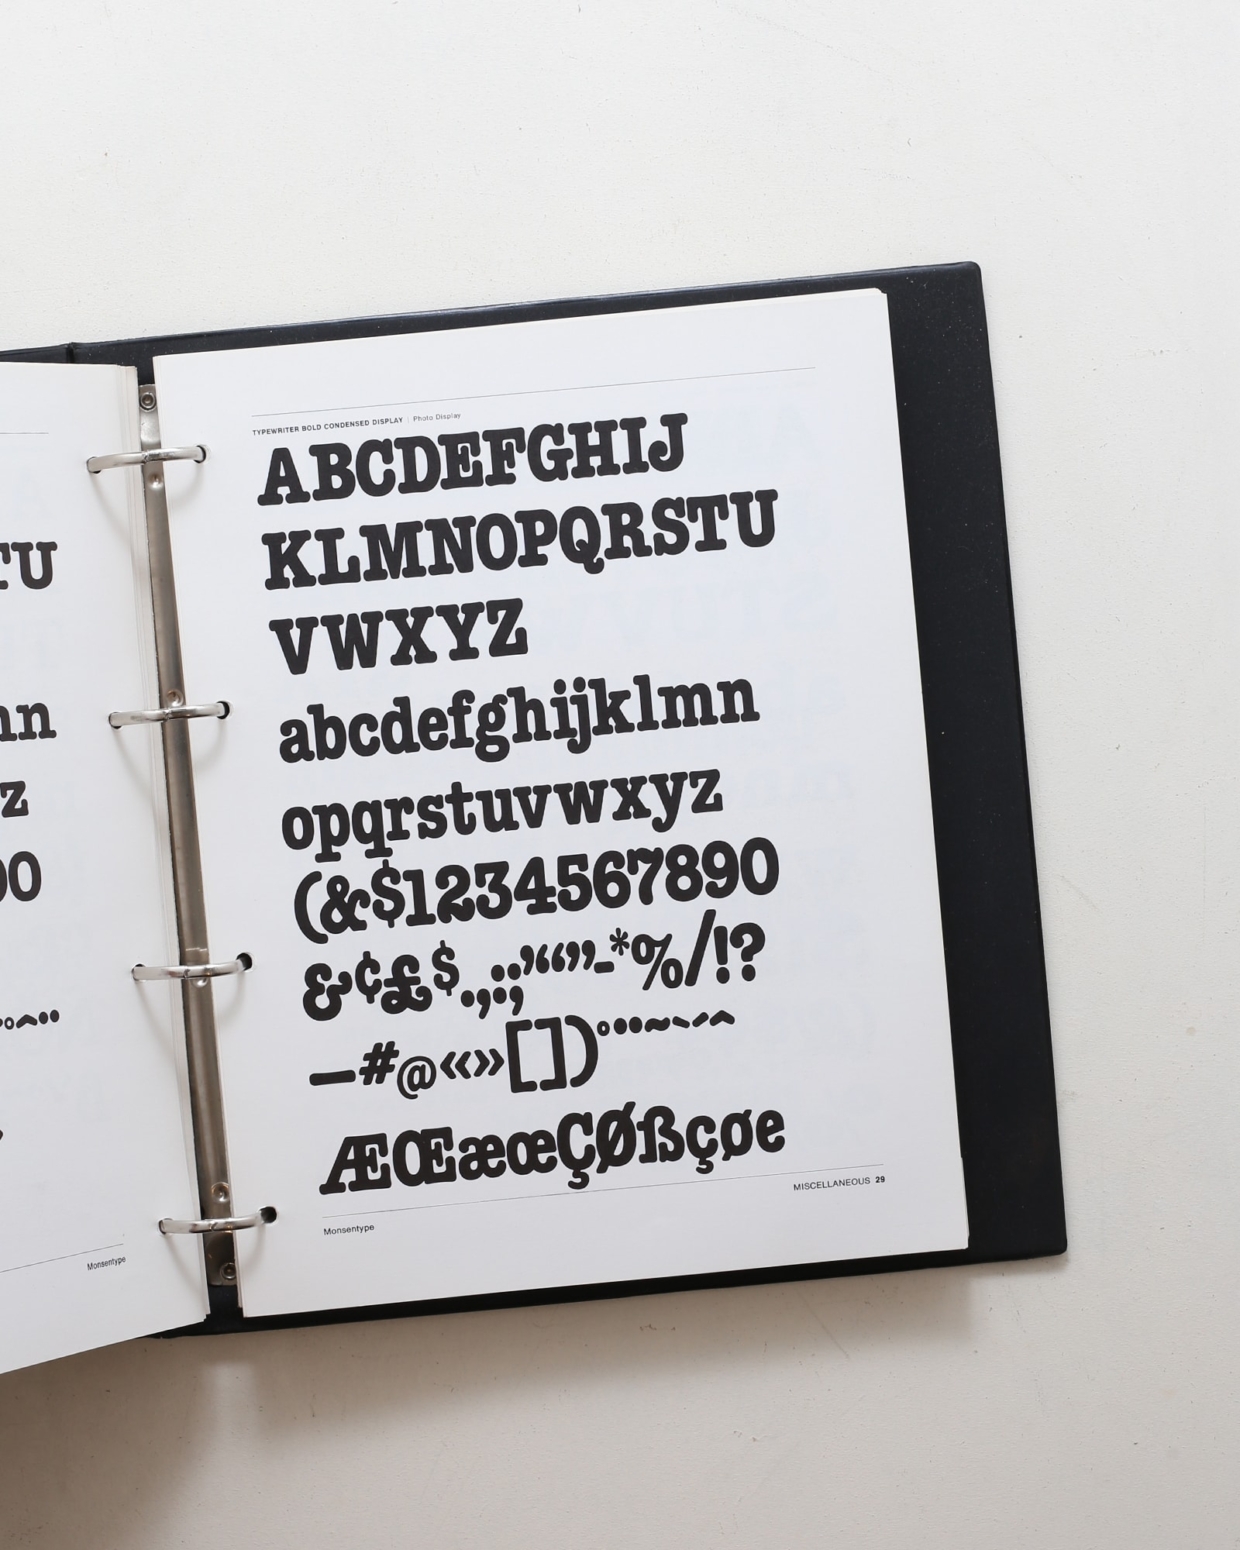 TU
nn
z
90
°ˆ¨
Monsentype
TYPEWRITER BOLD CONDENSED DISPLAY | Photo Display
ABCDEFGHIJ
KLMNOPQRSTU
VWXYZ
abcdefghijklmn
opqrstuvwxyz
(&$1234567890
&¢£$.,:;’“”-*%/!?
—#@«»[])°¨˜`´ˆ
ÆŒæœÇØßçøe
MISCELLANEOUS 29
Monsentype